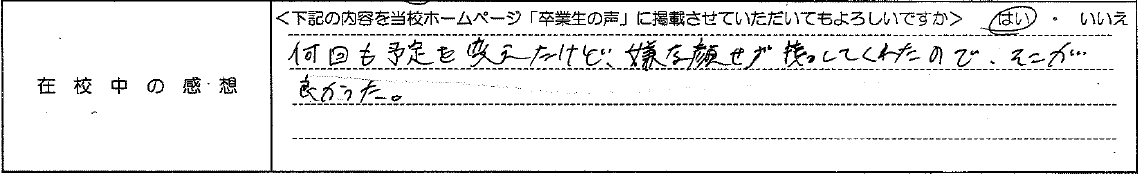 <下記の内容を当校ホームページ「卒業生の声」に掲載させていただいてもよろしいですか> はい ・ いいえ
在校中の感想
何回も予定を変えたけど、嫌な顔せず接してくれたので、そこが
良かった。